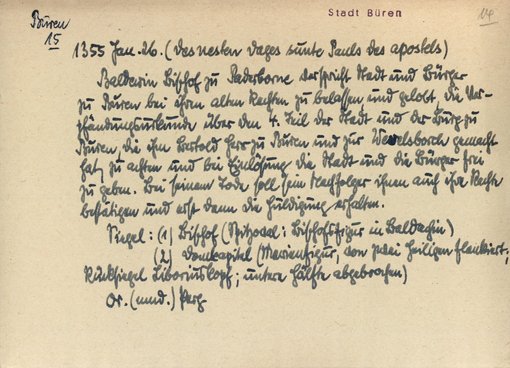 Büren
15
Stadt Büren
14
1355 Jan. 26. (des nesten dages sunte Pauls des apostels)
Balderin Bischof zu Paderborne verspricht Stadt und Bürger
zu Büren bei ihren alten Rechten zu belassen und gelobt die Ver-
pfändungsurkunde über den 4. Teil der Stadt und der Burg zu
Büren, die ihm Bartold Herr zu Büren und zur Wevelsborch gemacht
hat, zu achten und bei Einlösung die Stadt und die Bürger frei
zu geben. Bei seinem Tode soll sein Nachfolger ihnen auch ihre Rechte
bestätigen und erst dann die Huldigung erhalten.
Siegel: (1) Bischof (Spitzoval: Bischofsfigur in Baldachin)
(2) Domkapitel (Marienfigur, von zwei Heiligen flankiert;
Rücksiegel Liboriuskopf; untere Hälfte abgebrochen)
Or. (mnd.) Perg